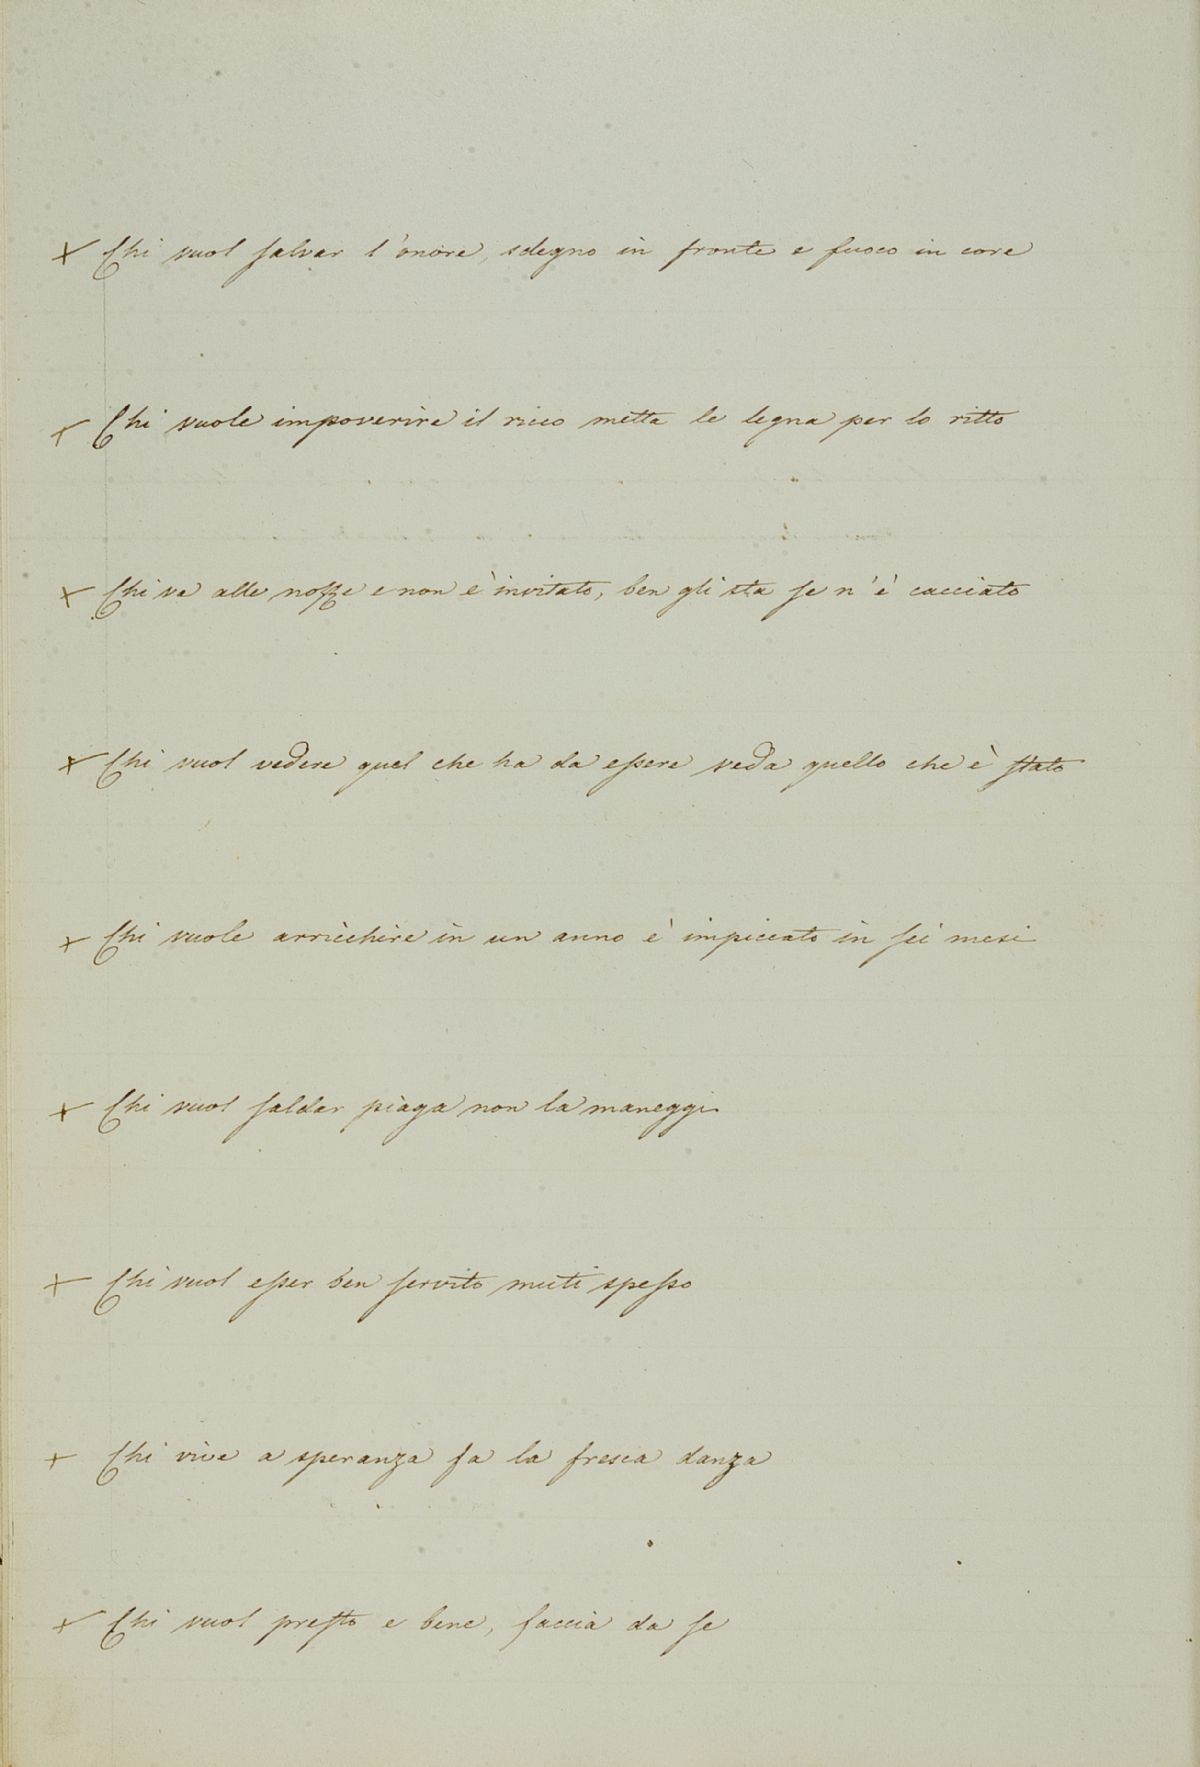 + Chi vuol salvar l'onore, sdegno in fronte e fuoco in core
+ Chi vuole impoverire il ricco metta le legna per lo ritto
+ Chi va alle nozze e non è invitato, ben gli sta se n'è cacciato
+ Chi vuol vedere quel che ha da essere veda quello che è stato
+ Chi vuole arricchire in un anno è impiccato in sei mesi
+ Chi vuol saldar piaga non la maneggi
+ Chi vuol esser ben servito muti spesso
+ Chi vive a speranza fa la fresca danza
+ Chi vuol presto e bene, faccia da se